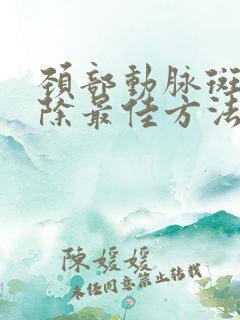 頚部動脉斑
除最佳方法
陳媛媛
未經同意禁止轉載